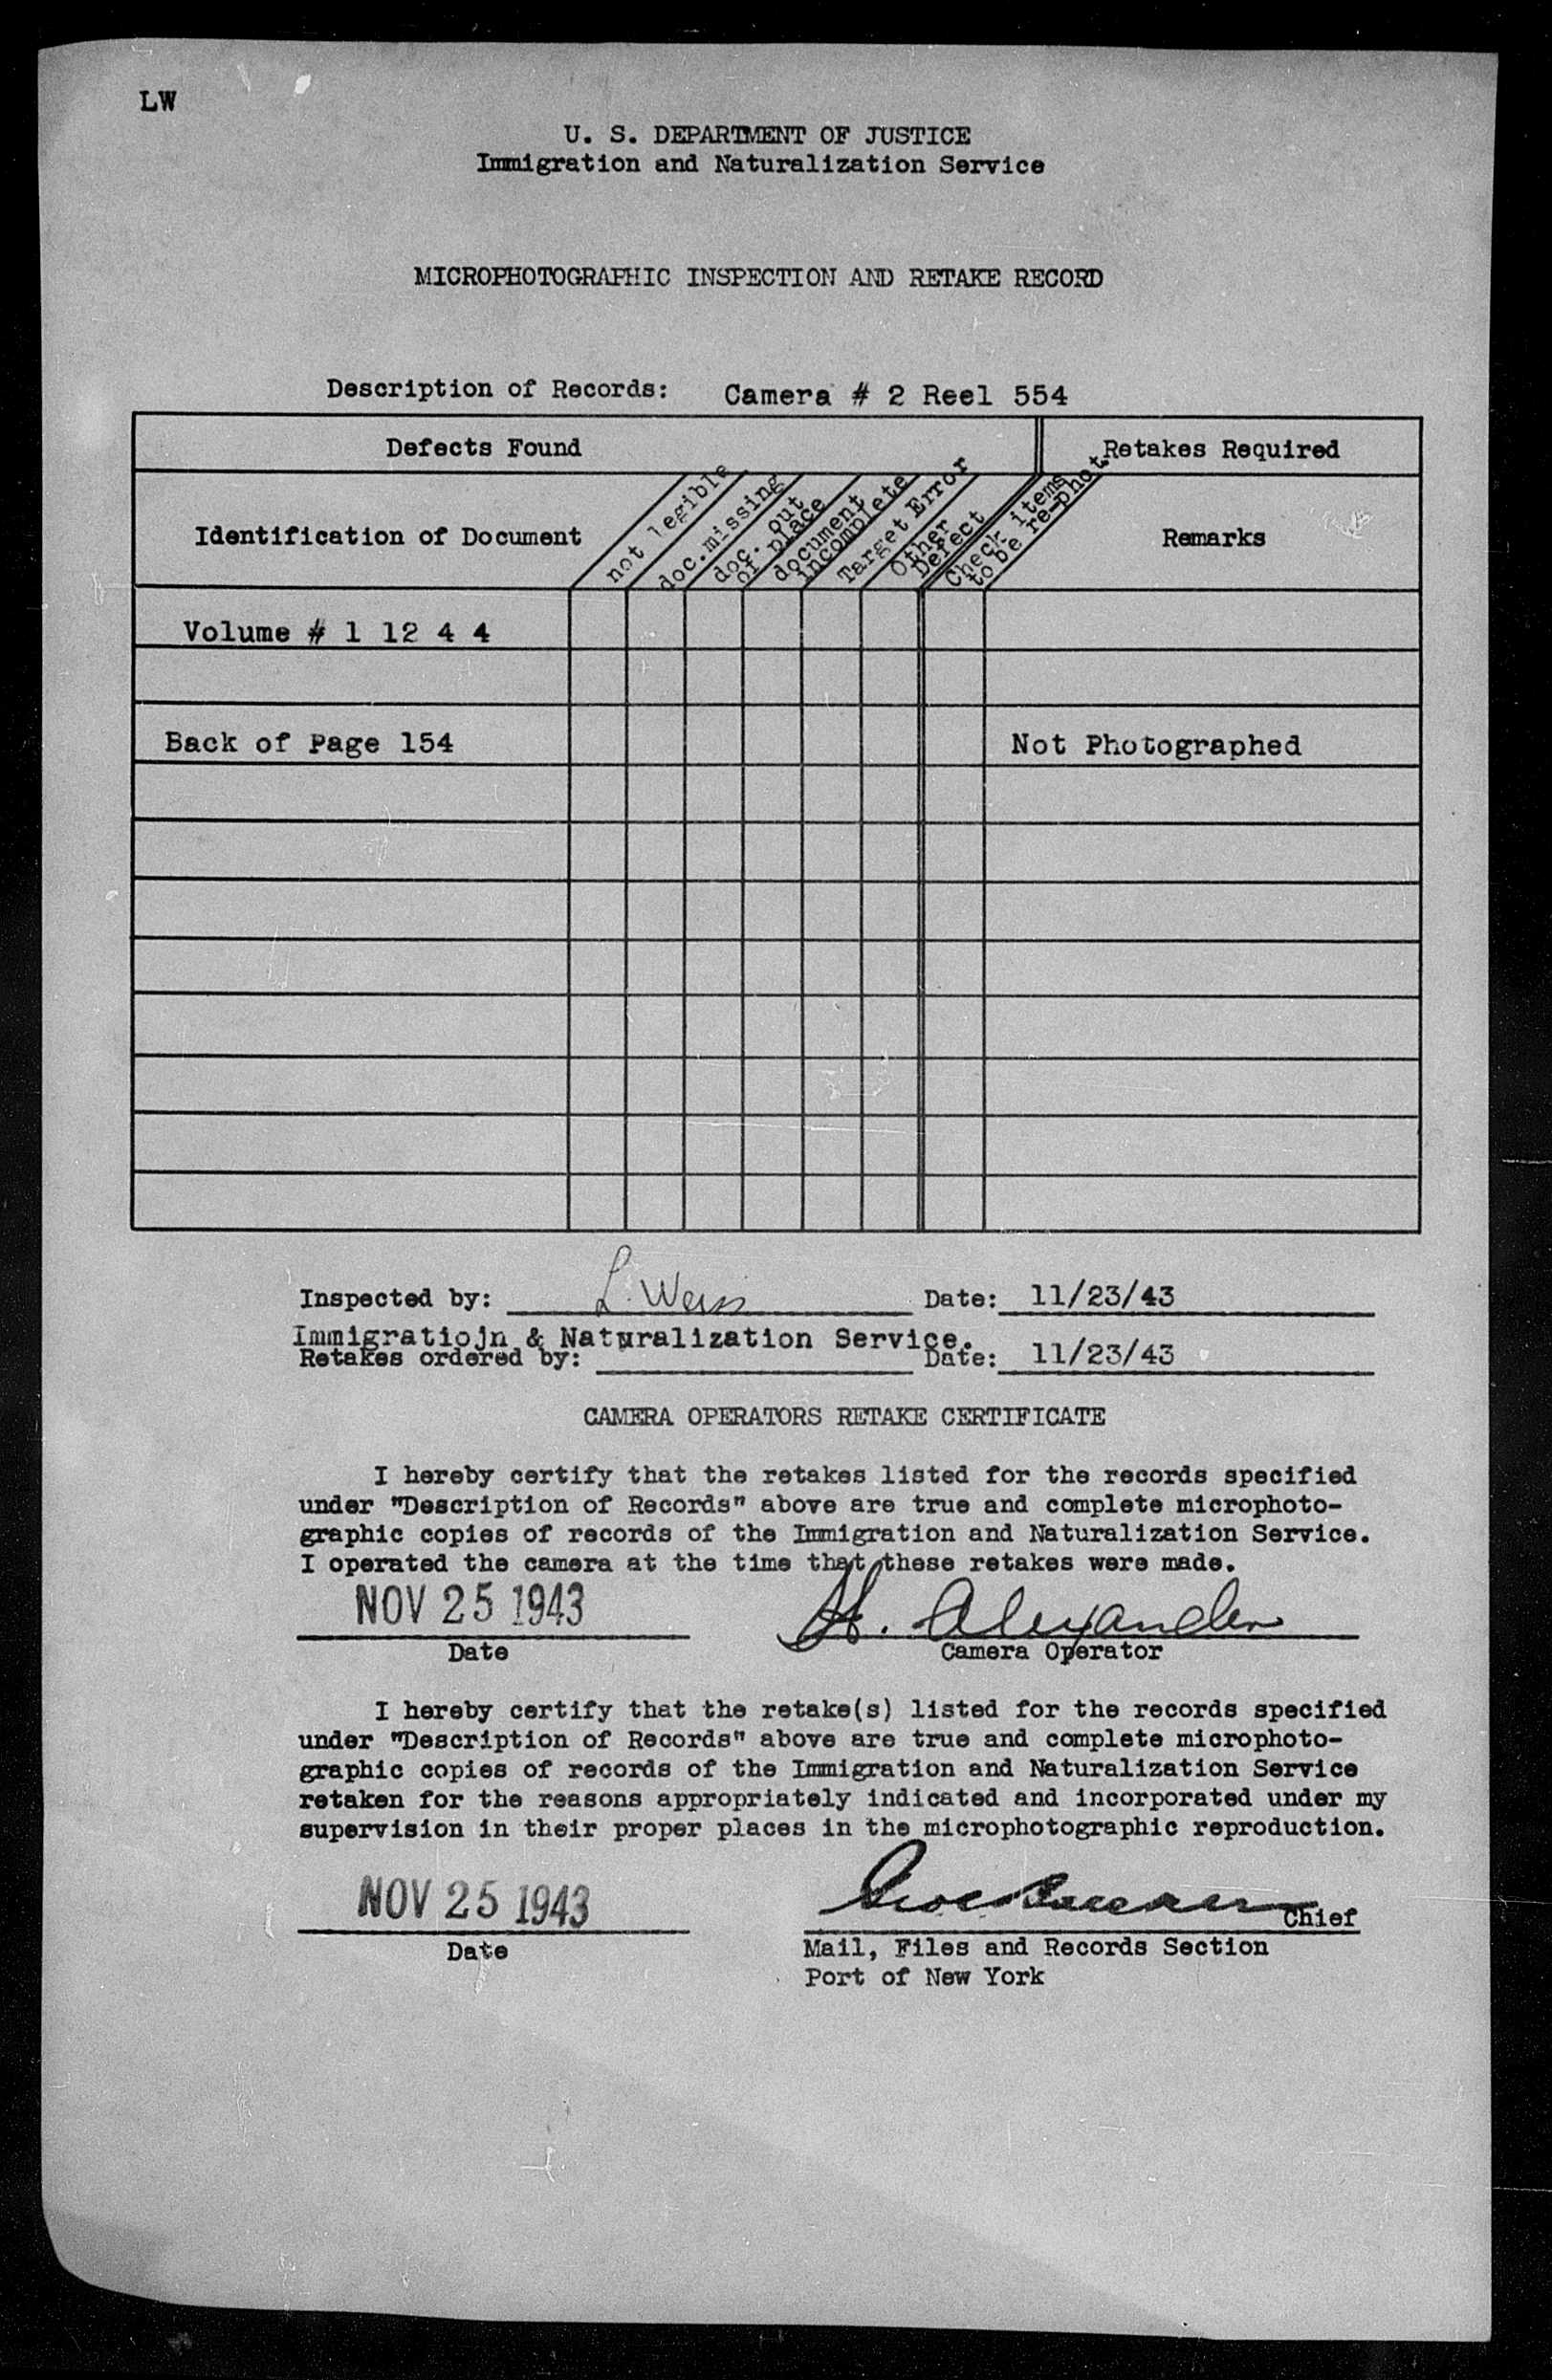 LW
U. S. DEPARTMENT OF JUSTICE
Immigration and Naturalization Service
MICROPHOTOGRAPHIC INSPECTION AND RETAKE RECORD
Description of Records: Camera # 2 Reel 554
Defects Found
Retakes Required
Identification of Document
not legible
doc. missing
doc. out
of place
document
incomplete
Target Error
Other
Defect
Check items
to be re-phot.
Remarks
Volume # 1 12 4 4
Back of Page 154 Not Photographed
Inspected by: L. Weiss Date: 11/23/43
Immigratiojn & Naturalization Service.
Retakes ordered by: Date: 11/23/43
CAMERA OPERATORS RETAKE CERTIFICATE
I hereby certify that the retakes listed for the records specified
under "Description of Records" above are true and complete microphoto-
graphic copies of records of the Immigration and Naturalization Service.
I operated the camera at the time that these retakes were made.
NOV 25 1943 H. Alexander
Date Camera Operator
I hereby certify that the retake(s) listed for the records specified
under "Description of Records" above are true and complete microphoto-
graphic copies of records of the Immigration and Naturalization Service
retaken for the reasons appropriately indicated and incorporated under my
supervision in their proper places in the microphotographic reproduction.
NOV 25 1943 Chief
Date Mail, Files and Records Section
Port of New York